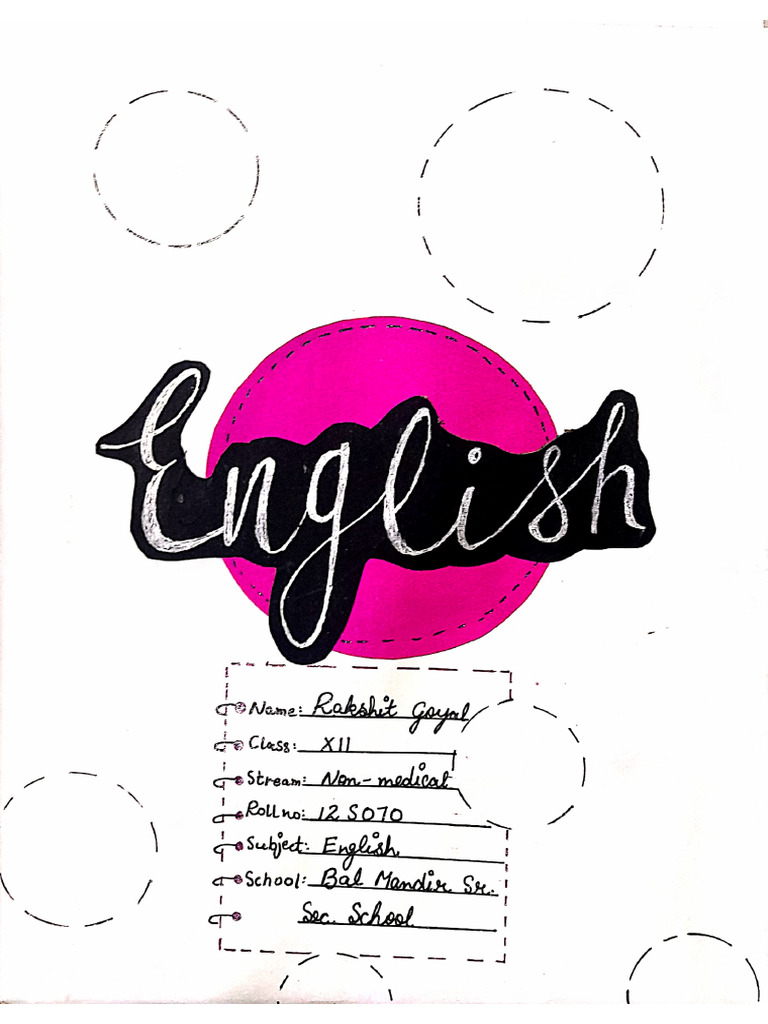 English
Name: Rakshit Goyal
Class: XII
Stream: Non-medical
Roll no: 12 S070
Subject: English
School: Bal Mandir Sr.
Sec. School